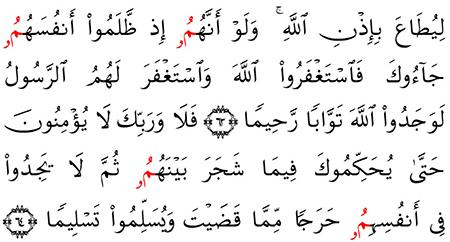 لِيُطَاعَ بِإِذْنِ ٱللَّهِۚ وَلَوْ أَنَّهُمُۥ إِذ ظَّلَمُوٓاْ أَنفُسَهُمُۥ
جَآءُوكَ فَٱسْتَغْفَرُواْ ٱللَّهَ وَٱسْتَغْفَرَ لَهُمُ ٱلرَّسُولُ
لَوَجَدُواْ ٱللَّهَ تَوَّابًا رَّحِيمًا ٦٣ فَلَا وَرَبِّكَ لَا يُؤْمِنُونَ
حَتَّىٰ يُحَكِّمُوكَ فِيمَا شَجَرَ بَيْنَهُمُۥ ثُمَّ لَا يَجِدُواْ
فِىٓ أَنفُسِهِمُۥ حَرَجًا مِّمَّا قَضَيْتَ وَيُسَلِّمُواْ تَسْلِيمًا ٦٤